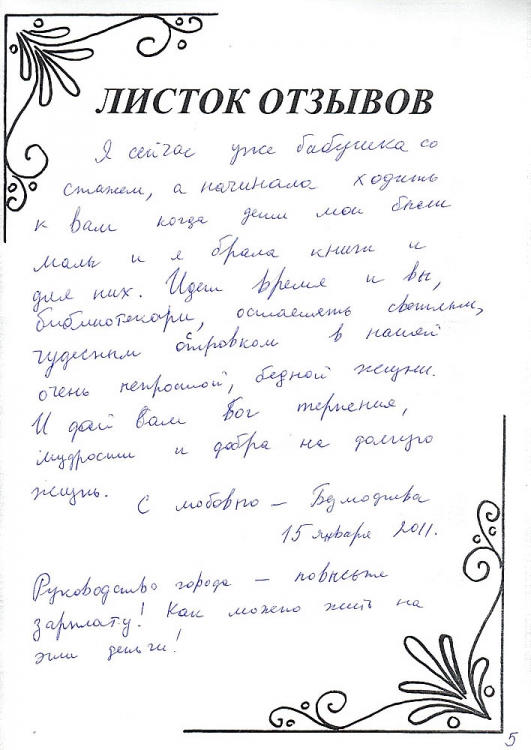 ЛИСТОК ОТЗЫВОВ
Я сейчас уже бабушка со
стажем, а начинала ходить
к вам когда дети мои были
малы и я брала книги и
для них. Идет время и вы,
библиотекари, остаетесь светлым,
чудесным островком в нашей
очень непростой, бедной жизни.
И дай Вам Бог терпения,
мудрости и добра на долгую
жизнь.
С любовью –
15 января 2011.
Руководство города – повысьте
зарплату! Как можно жить на
эти деньги!
5